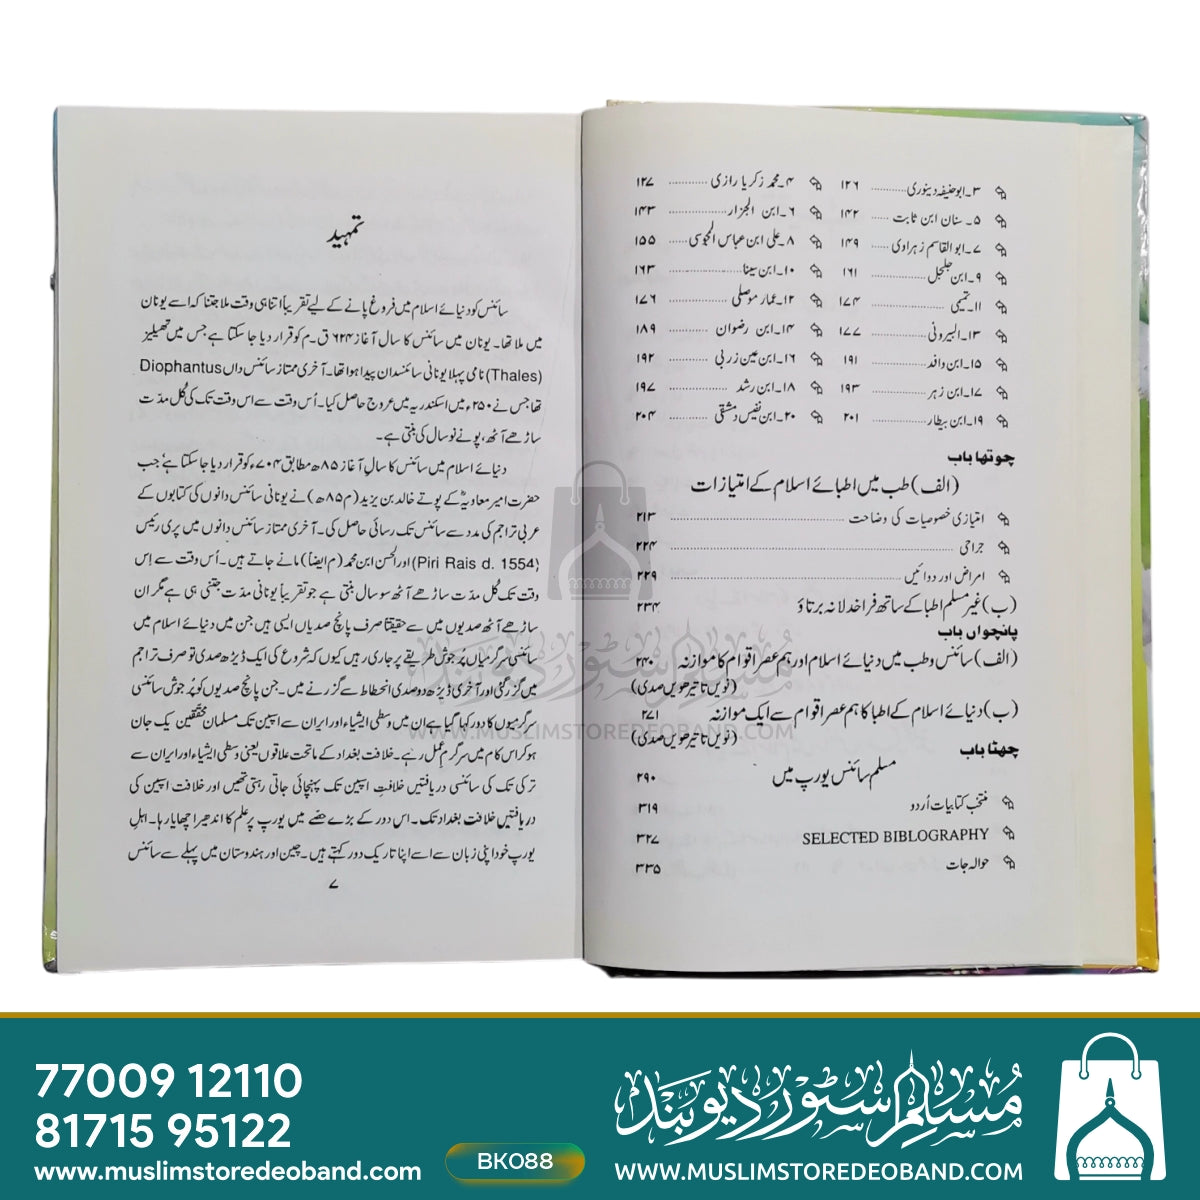 ۳۔ابوحنیفہ دینوری ............ ۱۲۶
۴۔محمد زکریا رازی ............ ۱۲۷
۵۔سنان ابن ثابت ...... ۱۴۲
۶۔ابن الجزار ............ ۱۴۳
۷۔ابوالقاسم زہراوی ...... ۱۴۹
۸۔علی ابن عباس المجوسی ...... ۱۵۵
۹۔ابن جلجل ............ ۱۶۱
۱۰۔ابن سینا ............ ۱۶۳
۱۱۔تمیمی ............ ۱۷۴
۱۲۔عمار موصلی ............ ۱۷۶
۱۳۔البیرونی ............ ۱۷۷
۱۴۔ابن رضوان ............ ۱۸۹
۱۵۔ابن وافد ............ ۱۹۱
۱۶۔ابن عین زربی ............ ۱۹۲
۱۷۔ابن زہر ............ ۱۹۳
۱۸۔ابن رشد ............ ۱۹۷
۱۹۔ابن بیطار ............ ۲۰۱
۲۰۔ابن نفیس دمشقی ............ ۲۰۴
چوتھا باب
(الف) طب میں اطبائے اسلام کے امتیازات
امتیازی خصوصیات کی وضاحت ............ ۲۱۳
جراحی ............ ۲۲۴
امراض اور دوائیں ............ ۲۲۹
(ب) غیر مسلم اطبا کے ساتھ فراخدلانہ برتاؤ ۲۳۴
پانچواں باب
(الف) سائنس و طب میں دنیائے اسلام اور ہم عصر اقوام کا موازنہ ۲۴۰
(نویں تا تیرھویں صدی)
(ب) دنیائے اسلام کے اطبا کا ہم عصر اقوام سے ایک موازنہ ۲۷۱
(نویں تا تیرھویں صدی)
چھٹا باب
مسلم سائنس یورپ میں ۲۹۰
منتخب کتابیات اُردو ۳۱۹
SELECTED BIBLOGRAPHY ۳۲۷
حوالہ جات ۳۳۵
تمہید
سائنس کو دنیائے اسلام میں فروغ پانے کے لیے تقریباً اتنا ہی وقت ملا جتنا کہ اسے یونان
میں ملا تھا۔ یونان میں سائنس کا سال آغاز ۶۲۴ ق۔م کو قرار دیا جا سکتا ہے جس میں تھیلیز
(Thales) نامی پہلا یونانی سائنسدان پیدا ہوا تھا۔ آخری ممتاز سائنس داں Diophantus
تھا جس نے ۲۵۰ء میں اسکندریہ میں عروج حاصل کیا۔ اُس وقت سے اس وقت تک کی کُل مدّت
ساڑھے آٹھ، پونے نو سال کی بنتی ہے۔
دنیائے اسلام میں سائنس کا سالِ آغاز ۸۵ھ مطابق ۷۰۴ء کو قرار دیا جا سکتا ہے جب
حضرت امیر معاویہؓ کے پوتے خالد بن یزید (م ۸۵ھ) نے یونانی سائنس دانوں کی کتابوں کے
عربی تراجم کی مدد سے سائنس تک رسائی حاصل کی۔ آخری ممتاز سائنس دانوں میں پری رئیس
(Piri Rais d. 1554) اور الحسن ابن محمد (م ایضاً) مانے جاتے ہیں۔ اُس وقت سے اِس
وقت تک کُل مدّت ساڑھے آٹھ سو سال بنتی ہے جو تقریباً یونانی مدّت جتنی ہی ہے مگر ان
ساڑھے آٹھ صدیوں میں سے حقیقتاً صرف پانچ صدیاں ایسی ہیں جن میں دنیائے اسلام میں
سائنسی سرگرمیاں پرجوش طریقے پر جاری رہیں کیوں کہ شروع کی ایک ڈیڑھ صدی تو صرف تراجم
میں گزر گئی اور آخری ڈیڑھ دو صدی انحطاط سے گزرنے میں۔ جن پانچ صدیوں کو پُرجوش سائنسی
سرگرمیوں کا دور کہا گیا ہے ان میں وسطی ایشیاء اور ایران سے اسپین تک مسلمان محققین یک جان
ہو کر اس کام میں سرگرمِ عمل رہے۔ خلافت بغداد کے ماتحت علاقوں یعنی وسطی ایشیاء اور ایران سے
ترکی تک کی سائنسی دریافتیں خلافتِ اسپین تک پہنچائی جاتی رہتی تھیں اور خلافت اسپین کی
دریافتیں خلافت بغداد تک۔ اس دور کے بڑے حصّے میں یورپ پر علم کا اندھیرا چھایا رہا۔ اہلِ
یورپ خود اپنی زبان سے اسے اپنا تاریک دور کہتے ہیں۔ چین اور ہندوستان میں پہلے سے سائنس
۷
مسلم سٹور دیوبند
WWW.MUSLIMSTOREDEOBAND.COM
77009 12110
81715 95122
www.muslimstoredeoband.com
BK088
مسلم سٹور دیوبند
WWW.MUSLIMSTOREDEOBAND.COM